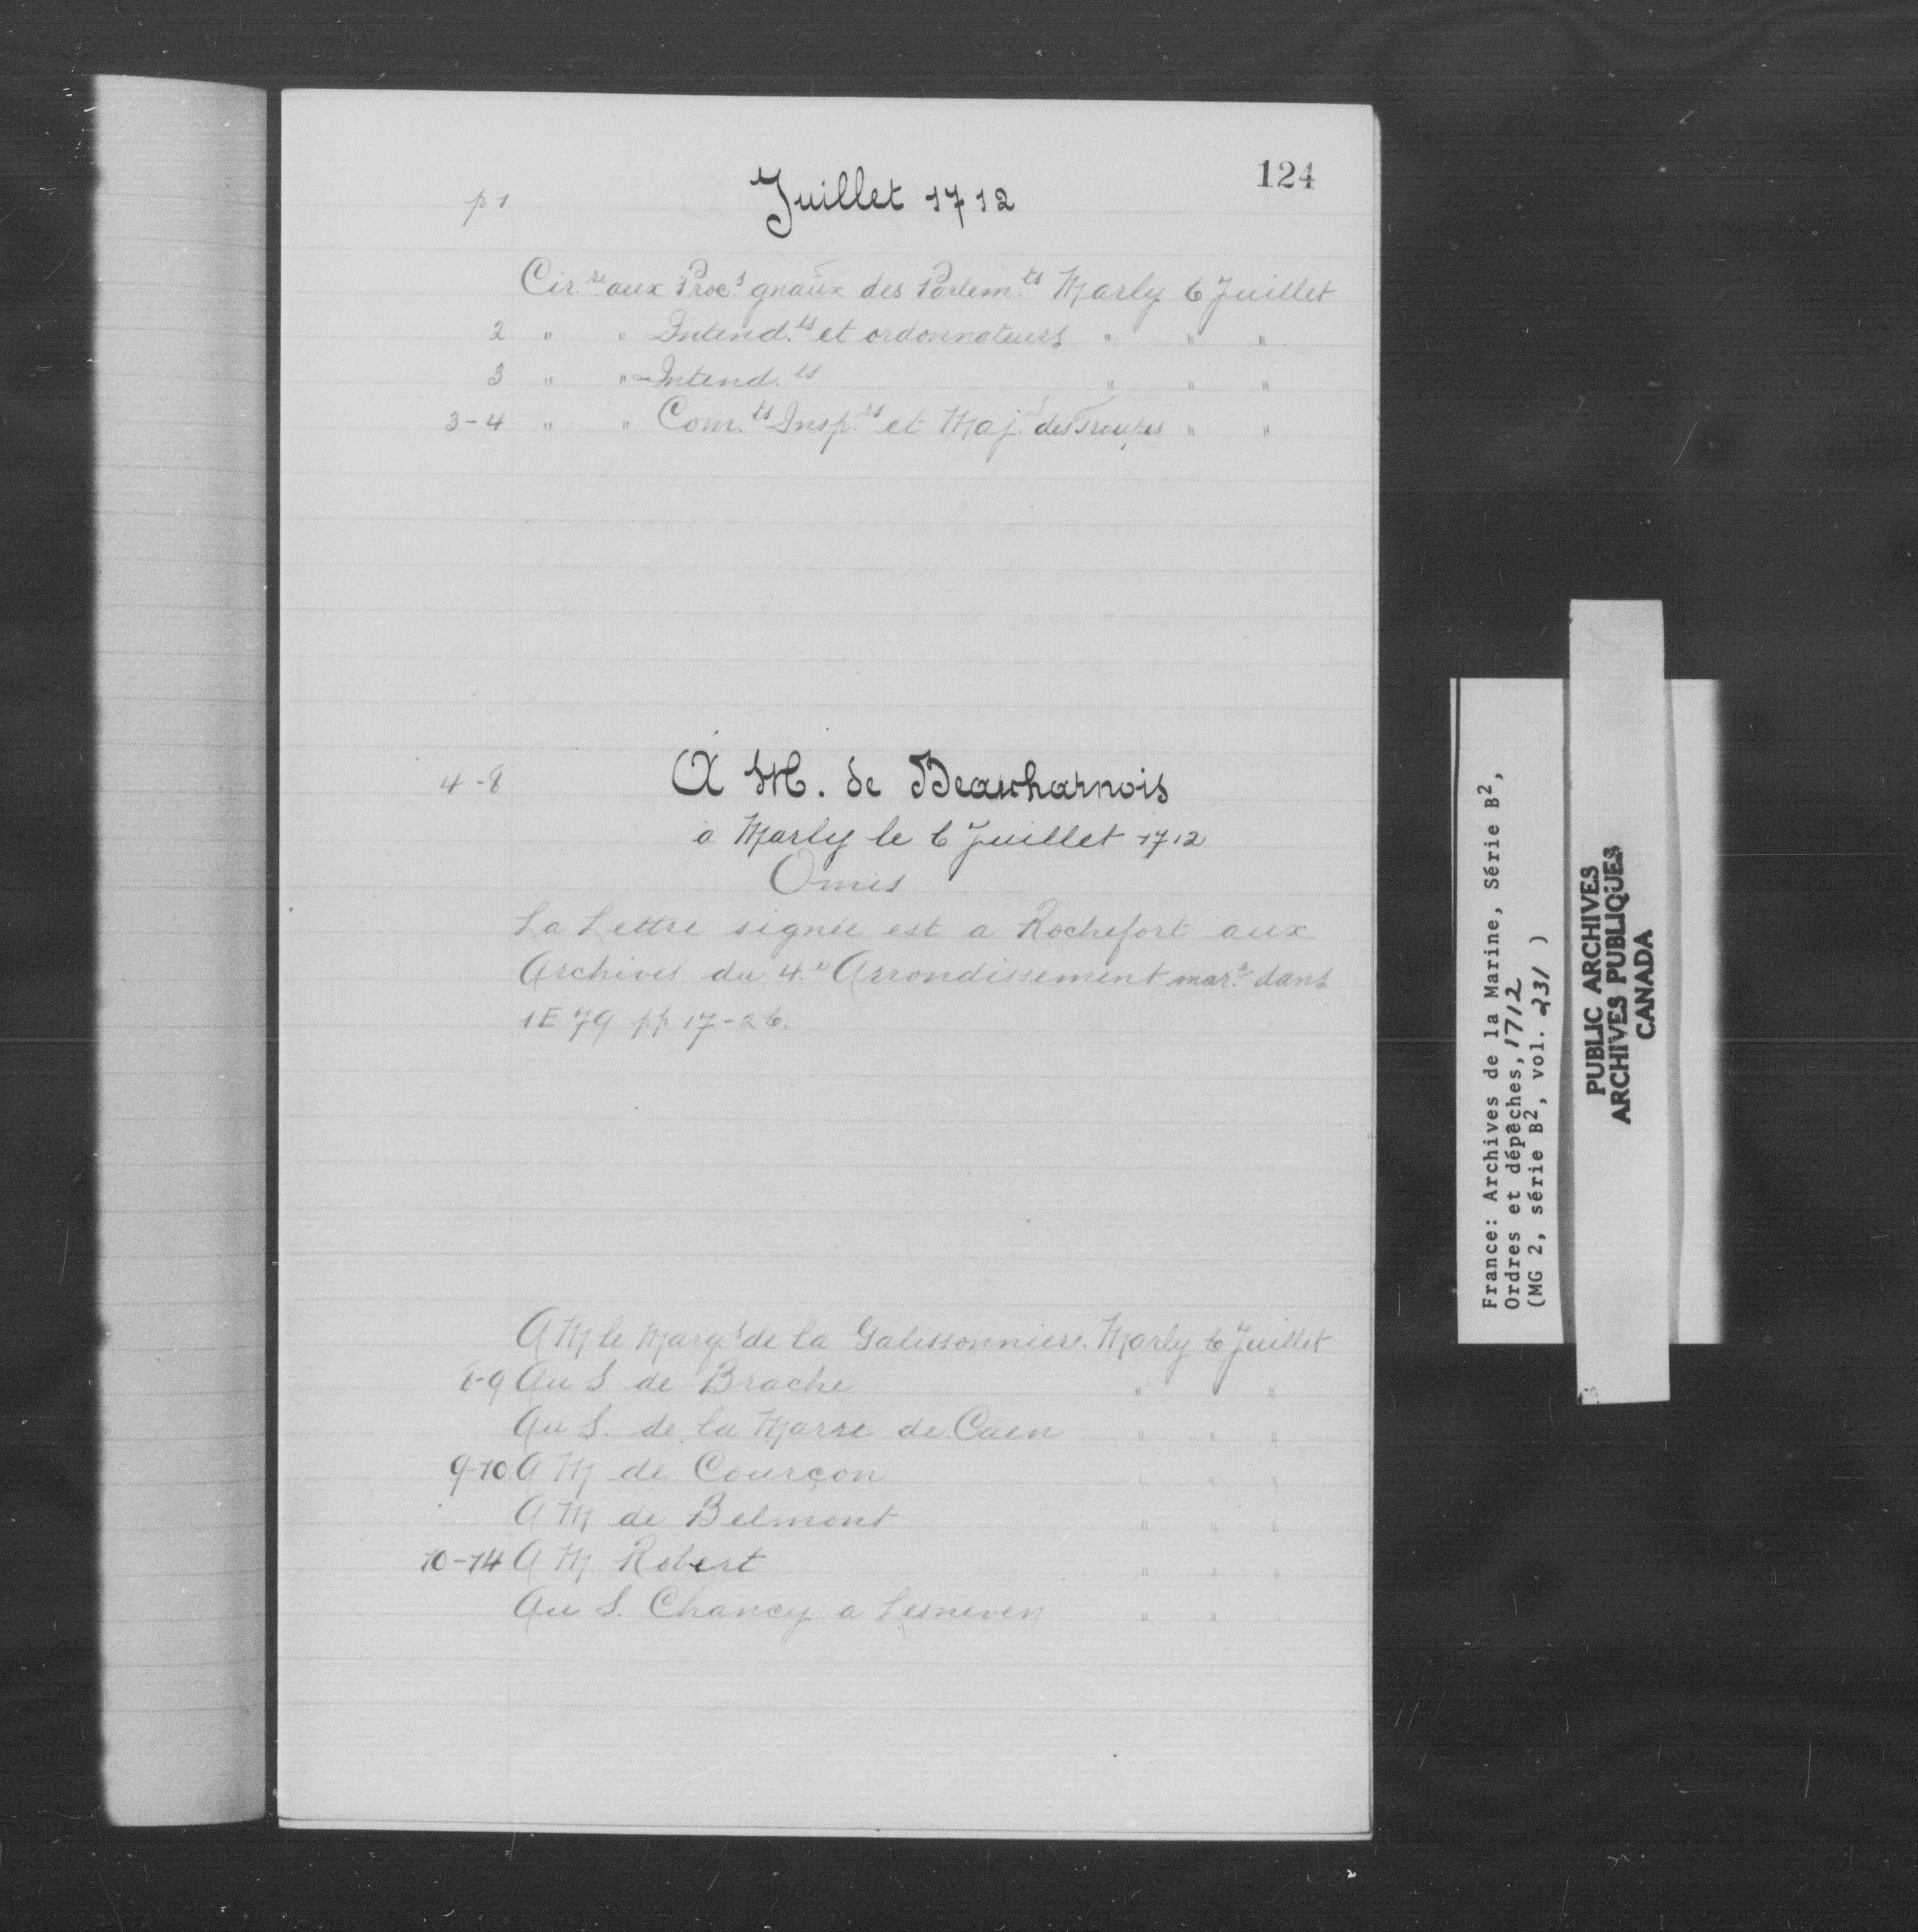 124
p 1 Juillet 1712
Cir.re aux Proc.s gnaux des Parlem.ts Marly 6 Juillet
2 " " Intend.ts et ordonnateurs " " "
3 " " Intend.ts " " "
3-4 " " Com.ts Insp.rs et Maj.rs des Troupes " "
4-8 A M. de Beauharnois
a Marly le 6 Juillet 1712
Omis
La Lettre signée est a Rochefort aux
Archives du 4.e Arrondissement mar.e dans
1E 79 pp 17-26.
A M le Marq.s de la Galissonniere. Marly 6 Juillet
8-9 Au S. de Brache " "
Au S. de la Marre de Caen " " "
9-10 A M de Courçon " " "
A M de Belmont " " "
10-14 A M Robert " " "
Au S. Chancy a Lesneven " "
France: Archives de la Marine, Série B2,
Ordres et dépêches, 1712
(MG 2, série B2, vol. 231 )
PUBLIC ARCHIVES
ARCHIVES PUBLIQUES
CANADA